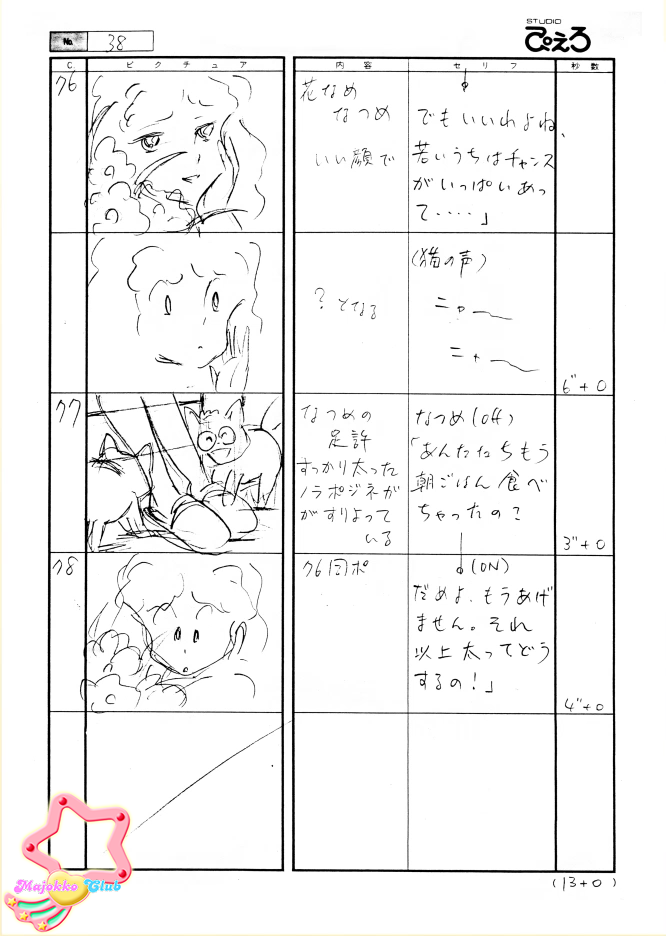 No. 38
STUDIO
ぴえろ
C. ピクチュア 内容 セリフ 秒数
76
花なめ
なつめ
いい顔で
でもいいわよね、
若いうちはチャンス
がいっぱいあっ
て・・・・」
？となる
(猫の声)
ニャー
ニャー
6"+0
77
なつめの
足許
すっかり太った
ノラポジネが
がすりよって
いる
なつめ(off)
「あんたたちもう
朝ごはん食べ
ちゃったの？
3"+0
78
76同ポ
(ON)
だめよ、もうあげ
ません。それ
以上太ってどう
するの！」
4"+0
(13+0)
Majokko Club